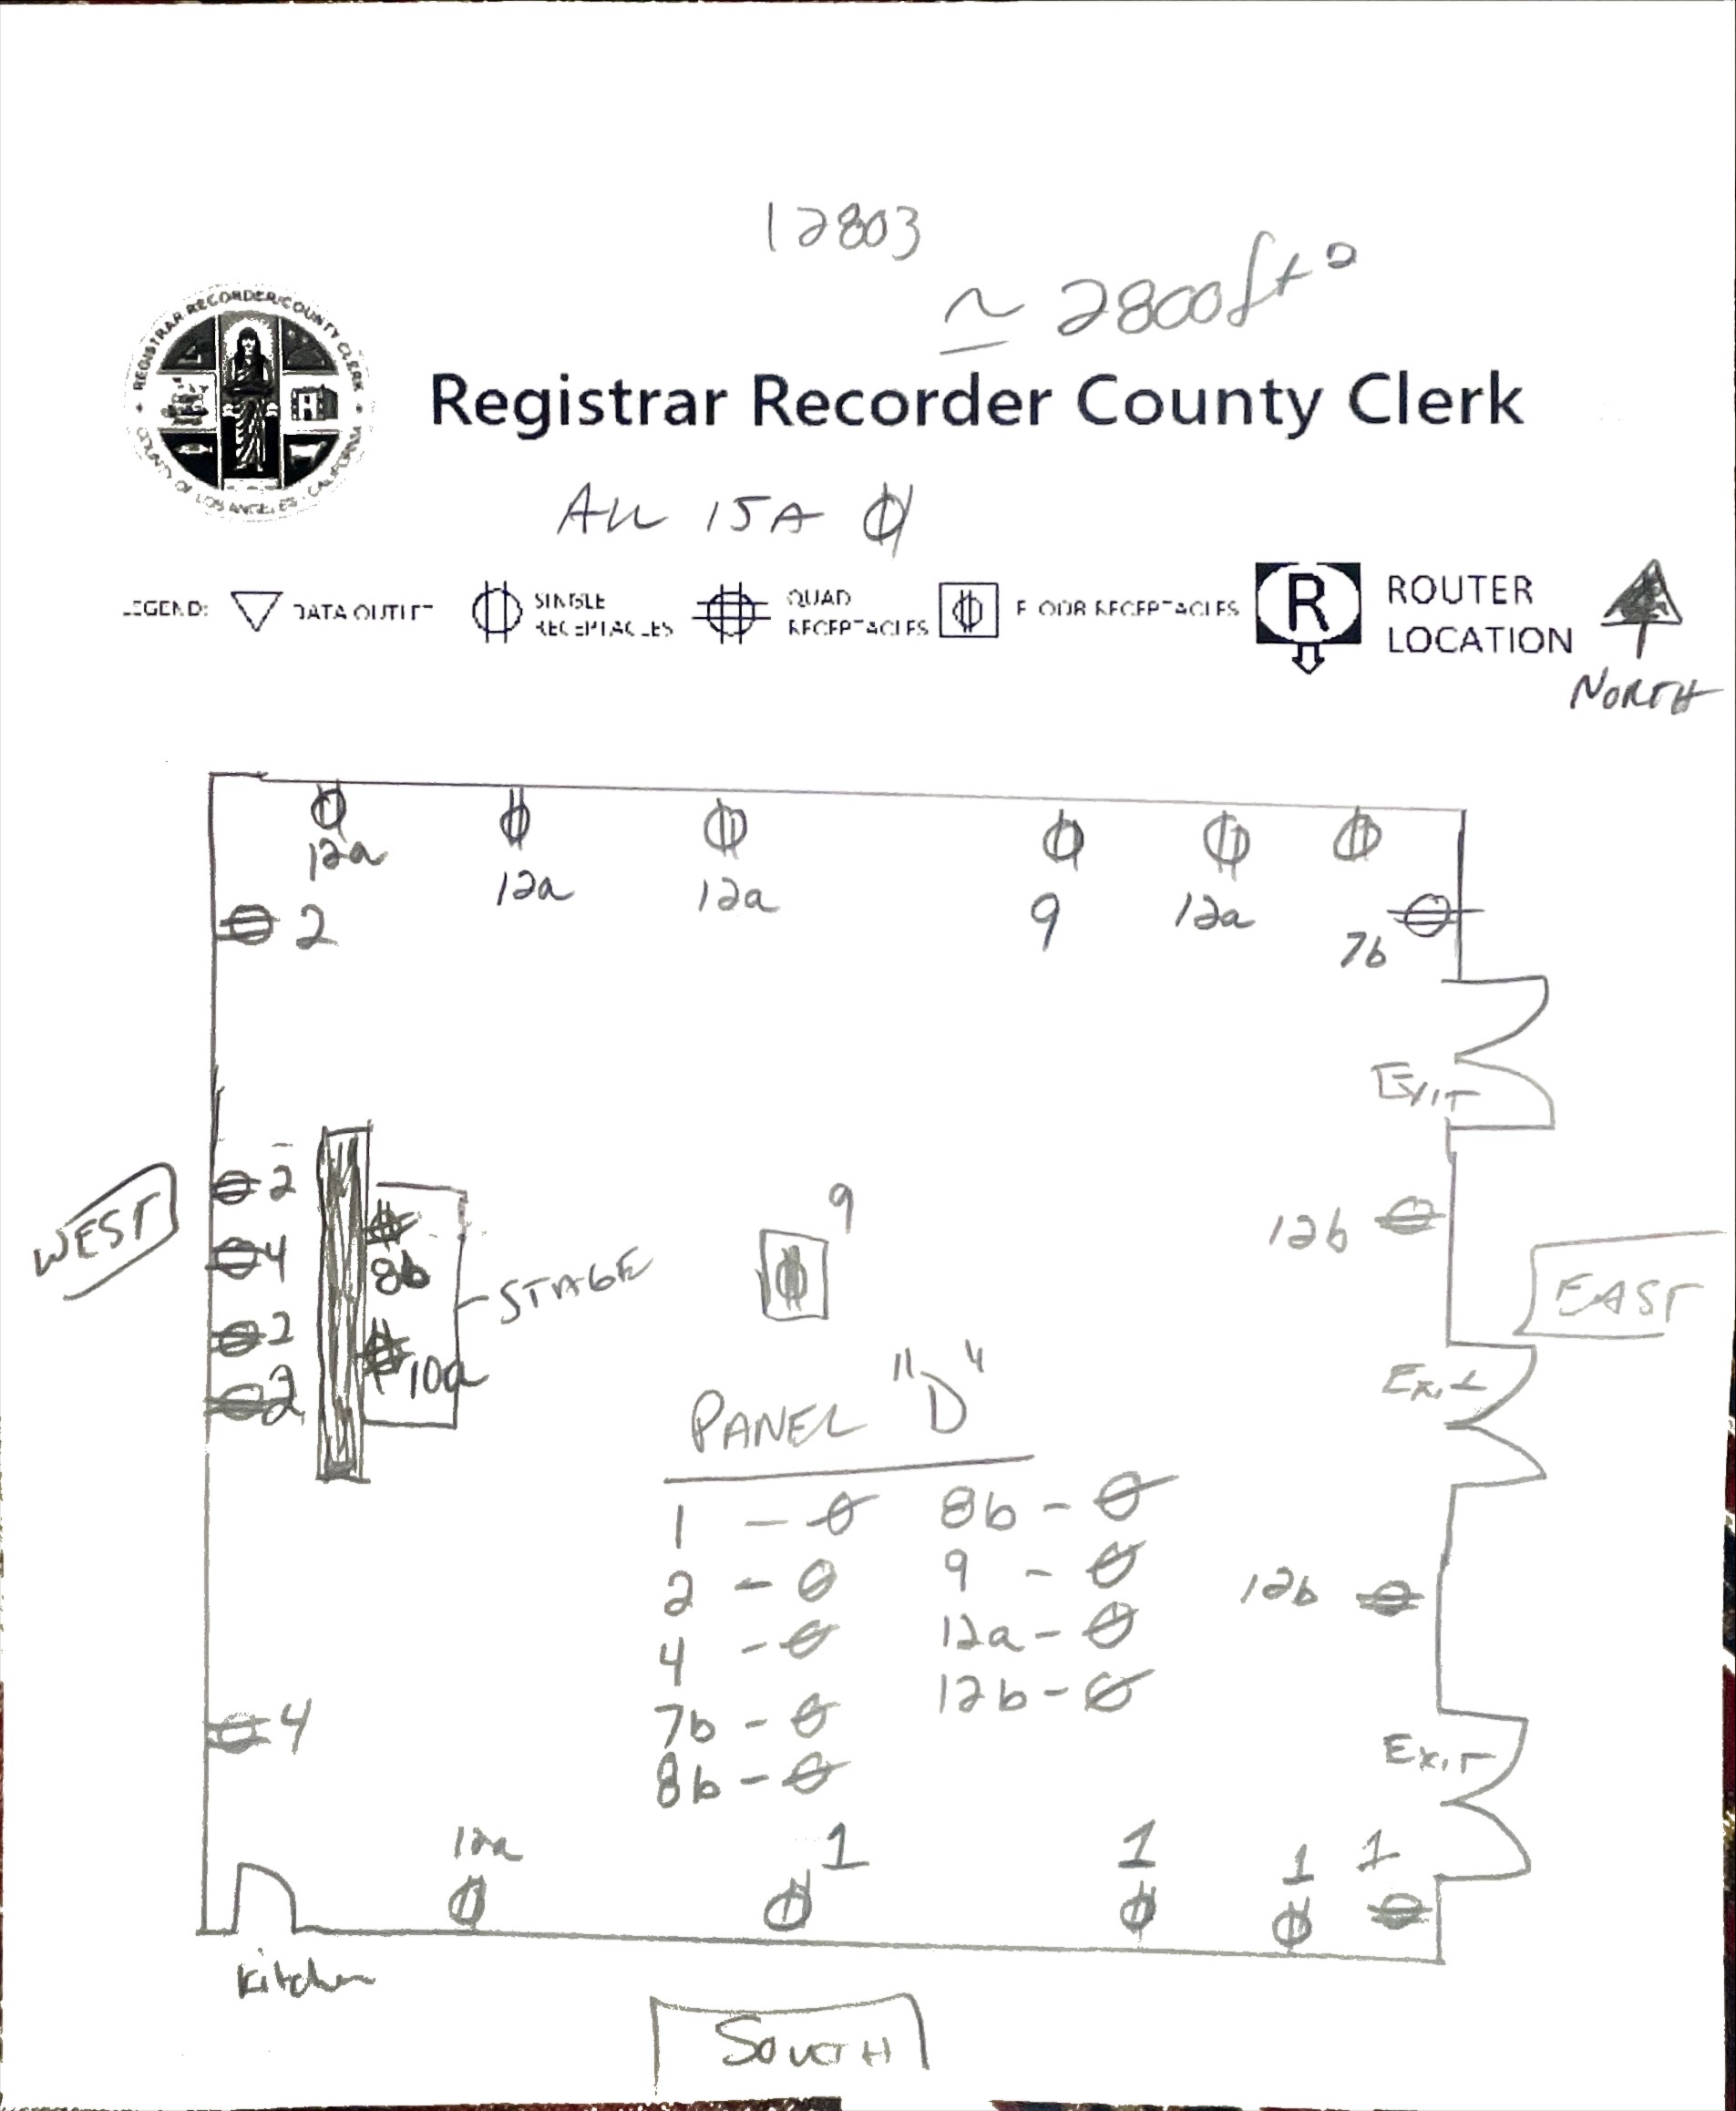 12803
≃ 2800ft²
REGISTRAR RECORDER/COUNTY CLERK
COUNTY OF LOS ANGELES · CALIFORNIA
Registrar Recorder County Clerk
All 15A
LEGEND: DATA OUTLET SINGLE RECEPTACLES QUAD RECEPTACLES FLOOR RECEPTACLES R ROUTER LOCATION
NORTH
12a
12a
12a
9
12a
2
7b
EXIT
2
WEST
4
8b
STAGE
9
12b
EAST
2
2
10a
PANEL "D"
Exit
1 - 8b -
2 - 9 -
4 - 12a -
7b - 12b -
8b -
12b
4
Exit
12a
1
1
1
1
Kitchen
SOUTH